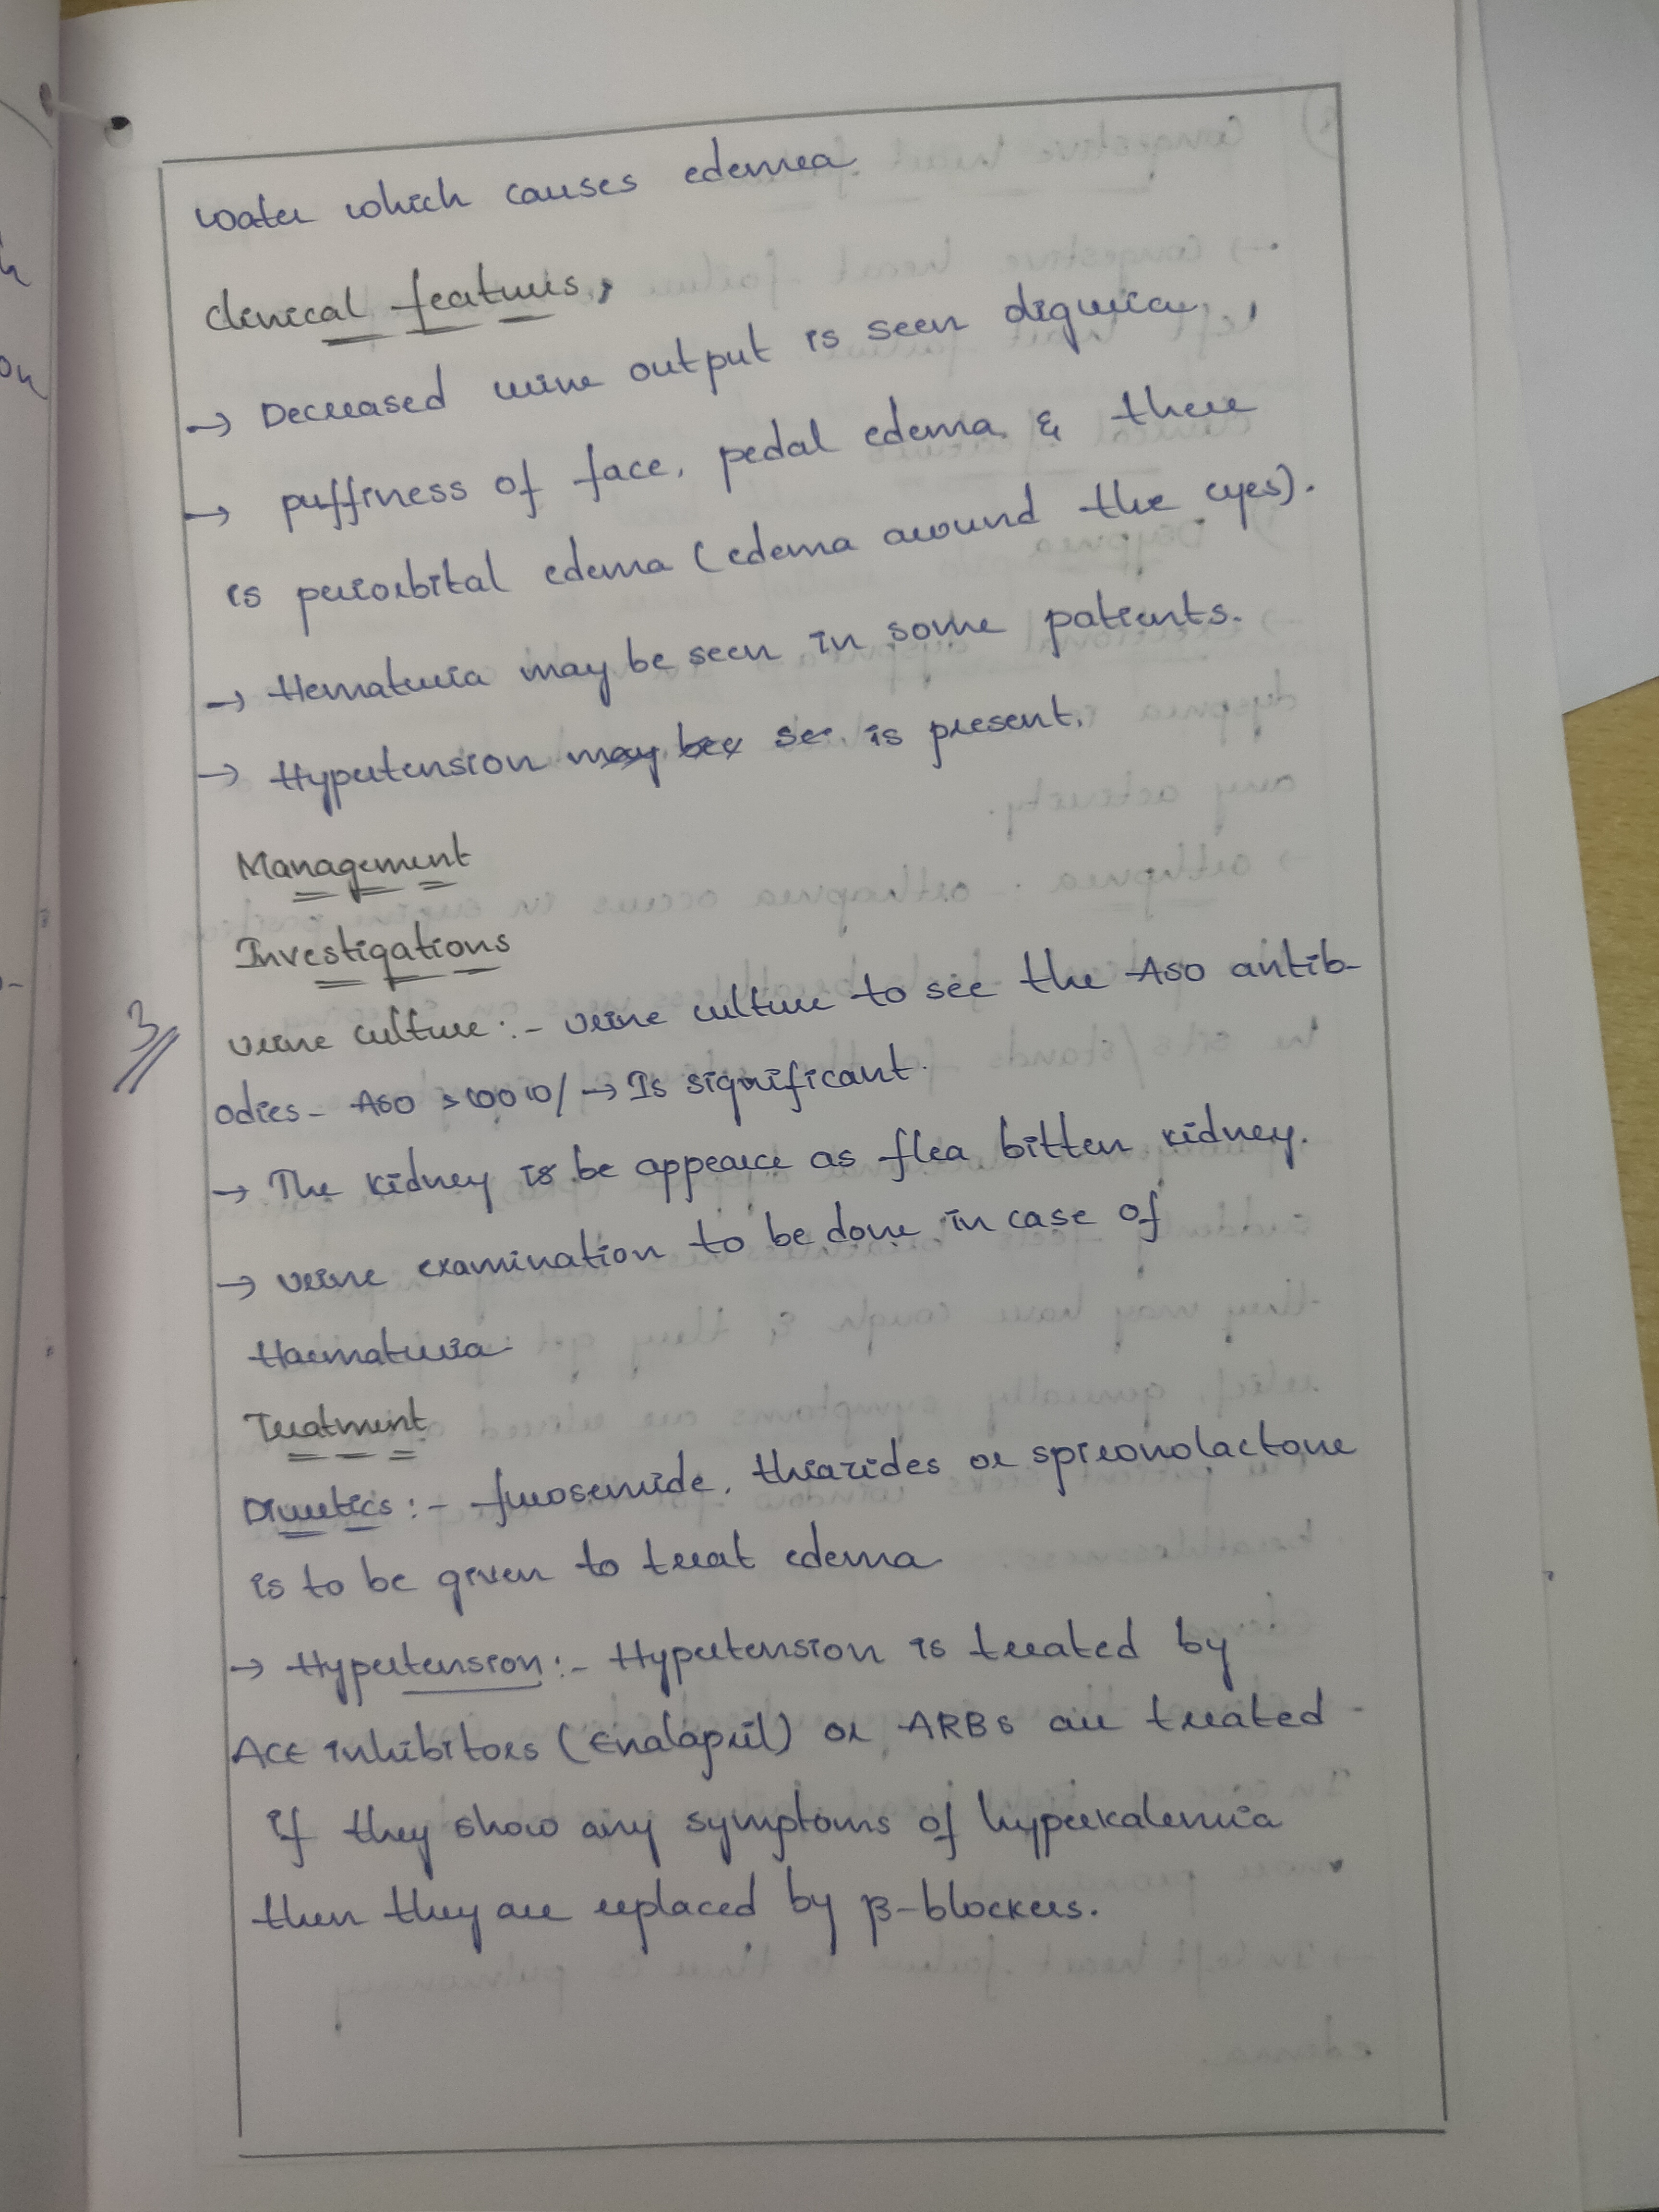 water which causes edemea
clinical features,
→ Decreased urine output is seen
→ puffiness of face, pedal edema & there
is periorbital edema (edema around the eyes).
→ Hematuria may be seen in some patients.
→ Hypertension may bee se is present.
Management
Investigations
3
urine culture :- urine culture to see the ASO antib-
odies - ASO → Is significant.
→ The kidney is be appearce as flea bitten kidney.
→ urine examination to be done in case of
Haematuria.
Treatment
Diuretics :- furosemide, thiazides or spironolactone
is to be given to treat edema
→ Hypertension :- Hypertension is treated by
ACE inhibitors (Enalapril) or ARBs are treated
if they show any symptoms of hyperkalemia
then they are replaced by β-blockers.